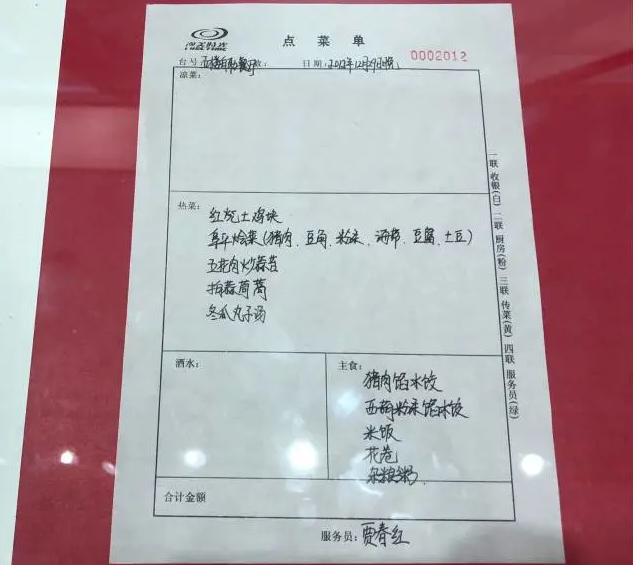 点菜单
0002012
台号： 日期：2012年12月29日晚
凉菜：
热菜：
红烧土鸡块
阜平烩菜（猪肉、豆角、粉条、海带、豆腐、土豆）
五花肉炒蒜苔
拍蒜茼蒿
冬瓜丸子汤
酒水：
主食：
猪肉馅水饺
西葫粉条馅水饺
米饭
花卷
杂粮粥。
合计金额
服务员：贾春红
一联 收银（白） 二联 厨房（粉） 三联 传菜（黄） 四联 服务员（绿）